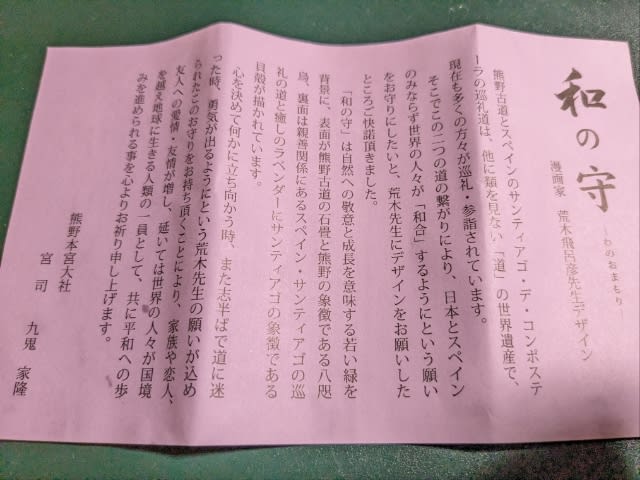 和の守
―わのおまもり―
漫画家　荒木飛呂彦先生デザイン
熊野古道とスペインのサンティアゴ・デ・コンポステ
ーラの巡礼道は、他に類を見ない「道」の世界遺産で、
現在も多くの方々が巡礼・参詣されています。
そこでこの二つの道の繋がりにより、日本とスペイン
のみならず世界の人々が「和合」するようにという願い
をお守りにしたいと、荒木先生にデザインをお願いした
ところご快諾頂きました。
「和の守」は自然への敬意と成長を意味する若い緑を
背景に、表面が熊野古道の石畳と熊野の象徴である八咫
烏、裏面は親善関係にあるスペイン・サンティアゴの巡
礼の道と癒しのラベンダーにサンティアゴの象徴である
貝殻が描かれています。
心を決めて何かに立ち向かう時、また志半ばで道に迷
った時、勇気が出るようにという荒木先生の願いが込め
られたこのお守りをお持ち頂くことにより、家族や恋人、
友人への愛情・友情が増し、延いては世界の人々が国境
を越え地球に生きる人類の一員として、共に平和への歩
みを進められる事を心よりお祈り申し上げます。
熊野本宮大社
宮司　九鬼　家隆